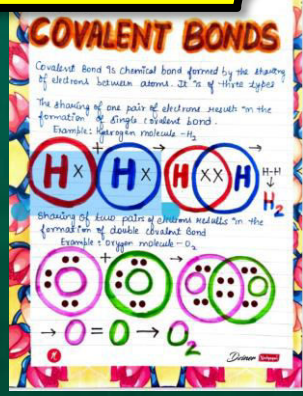 COVALENT BONDS
Covalent Bond is chemical bond formed by the sharing
of electrons between atoms. It is of three types
The sharing of one pair of electrons results in the
formation of single covalent bond.
Example: Hydrogen molecule - H₂
+ → →
H x H x H xx H H-H
↓
H₂
Sharing of two pairs of electrons results in the
formation of double covalent Bond
Example: oxygen molecule - O₂
+ →
O O O O
→ O = O → O₂
Diviner